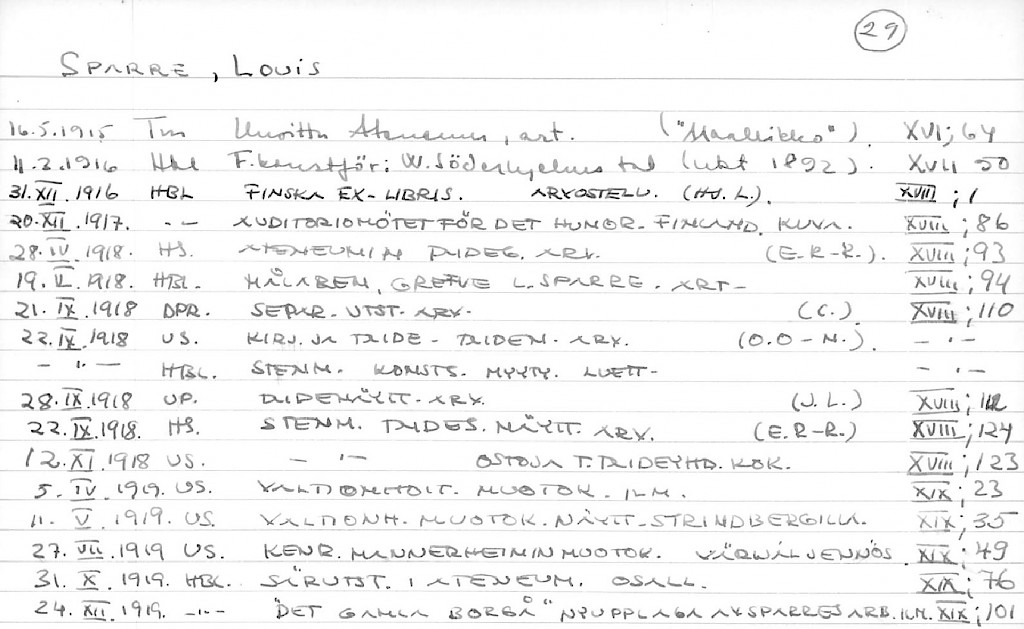 29
SPARRE, LOUIS
16.5.1915 Tm Ateneum, art. ("Maalikko"). XVI; 64
11.2.1916 Hbl F. konstför; W. Söderhjelms tal (ubt 1892). XVII 50
31.XII.1916 HBL FINSKA EX-LIBRIS. ARVOSTELU. (HJ. L.). XVII; 1
20.XII.1917. -"- AUDITORIOMÖTET FÖR DET HUMOR. FINLAND. KUVA. XVIII; 86
28.IV.1918. HS. ATENEUMIN TAIDEG. ARV. (E.R-R.). XVIII; 93
19.V.1918. HBL. MÅLAREN, GREFVE L. SPARRE. ART- XVIII; 94
21.IX.1918 DPR. SEPAR. UTST. ARV. (C.) XVIII; 110
22.IX.1918 US. KIRJ. JA TAIDE - TAIDEN. ARV. (O.O-N.). -"-
-"- HBL. STENM. KONSTS. MYYTY. LUETT- -"-
28.IX.1918 UP. TAIDENÄYTT. ARV. (J.L.) XVIII; 112
22.IX.1918. HS. STENM. TAIDES. NÄYTT. ARV. (E.R-R.) XVIII; 124
12.XI.1918 US. -"- OSTOJA T. TAIDEYHD. KOK. XVIII; 123
5.IV.1919. US. VALTIONHOIT. MUOTOK. ILM. XIX; 23
11.V.1919. US. VALTIONH. MUOTOK. NÄYTT. STRINDBERGILLA. XIX; 35
27.VII.1919 US. KENR. MANNERHEIMIN MUOTOK. VÄRIVÄLJENNÖS XIX; 49
31.X.1919. HBL. SÄRUTST. I ATENEUM. OSALL. XIX; 76
24.XII.1919. -"- "DET GAMLA BORGÅ" NYUPPLAGA AV SPARRES ARB. ILM. XIX; 101